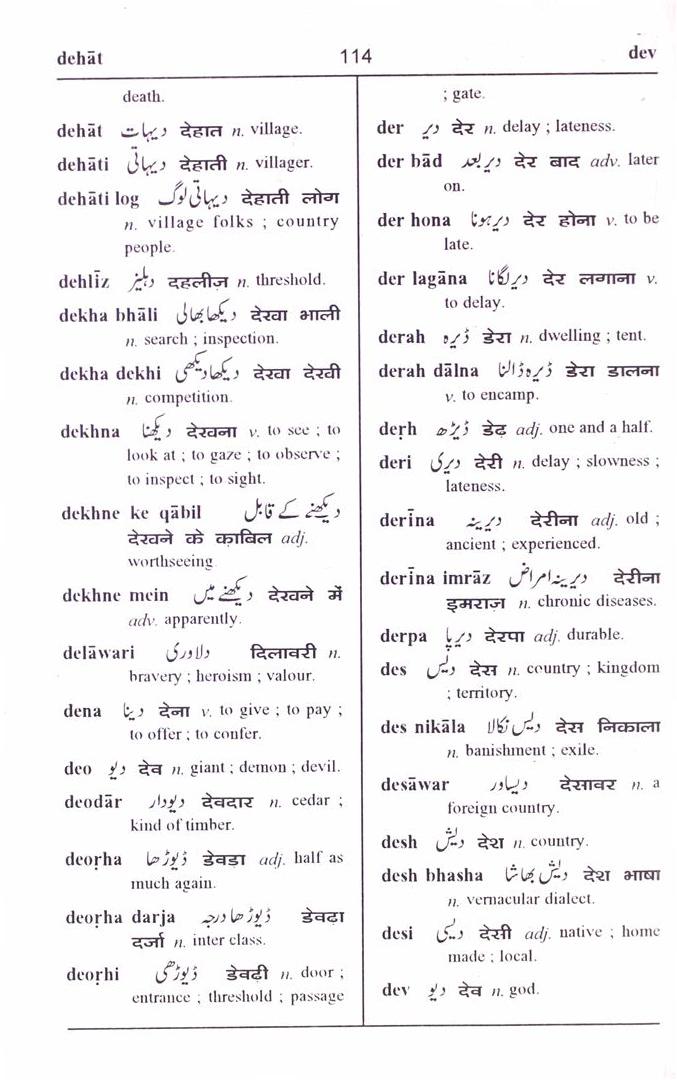 dehāt
114
dev
death.
dehāt دیہات देहात n. village.
dehāti دیہاتی देहाती n. villager.
dehāti log دیہاتی لوگ देहाती लोग
n. village folks ; country
people.
dehlīz دہلیز दहलीज़ n. threshold.
dekha bhāli دیکھا بھالی देखा भाली
n. search ; inspection.
dekha dekhi دیکھا دیکھی देखा देखी
n. competition.
dekhna دیکھنا देखना v. to see ; to
look at ; to gaze ; to observe ;
to inspect ; to sight.
dekhne ke qābil دیکھنے کے قابل
देखने के क़ाबिल adj.
worthseeing.
dekhne mein دیکھنے میں देखने में
adv. apparently.
delāwari دلاوری दिलावरी n.
bravery ; heroism ; valour.
dena دینا देना v. to give ; to pay ;
to offer ; to confer.
deo دیو देव n. giant ; demon ; devil.
deodār دیودار देवदार n. cedar ;
kind of timber.
deoṛha ڈیوڑھا डेवड़ा adj. half as
much again.
deoṛha darja ڈیوڑھا درجہ डेवढ़ा
दर्जा n. inter class.
deoṛhi ڈیوڑھی डेवढी n. door ;
entrance ; threshold ; passage
; gate.
der دیر देर n. delay ; lateness.
der bād دیر بعد देर बाद adv. later
on.
der hona دیر ہونا देर होना v. to be
late.
der lagāna دیر لگانا देर लगाना v.
to delay.
derah ڈیرہ डेरा n. dwelling ; tent.
derah dālna ڈیرہ ڈالنا डेरा डालना
v. to encamp.
deṛh ڈیڑھ डेढ़ adj. one and a half.
deri دیری देरी n. delay ; slowness ;
lateness.
derīna دیرینہ देरीना adj. old ;
ancient ; experienced.
derīna imrāz دیرینہ امراض देरीना
इमराज़ n. chronic diseases.
derpa دیرپا देरपा adj. durable.
des دیس देस n. country ; kingdom
; territory.
des nikāla دیس نکالا देस निकाला
n. banishment ; exile.
desāwar دیساور देसावर n. a
foreign country.
desh دیش देश n. country.
desh bhasha دیش بھاشا देश भाषा
n. vernacular dialect.
desi دیسی देसी adj. native ; home
made ; local.
dev دیو देव n. god.